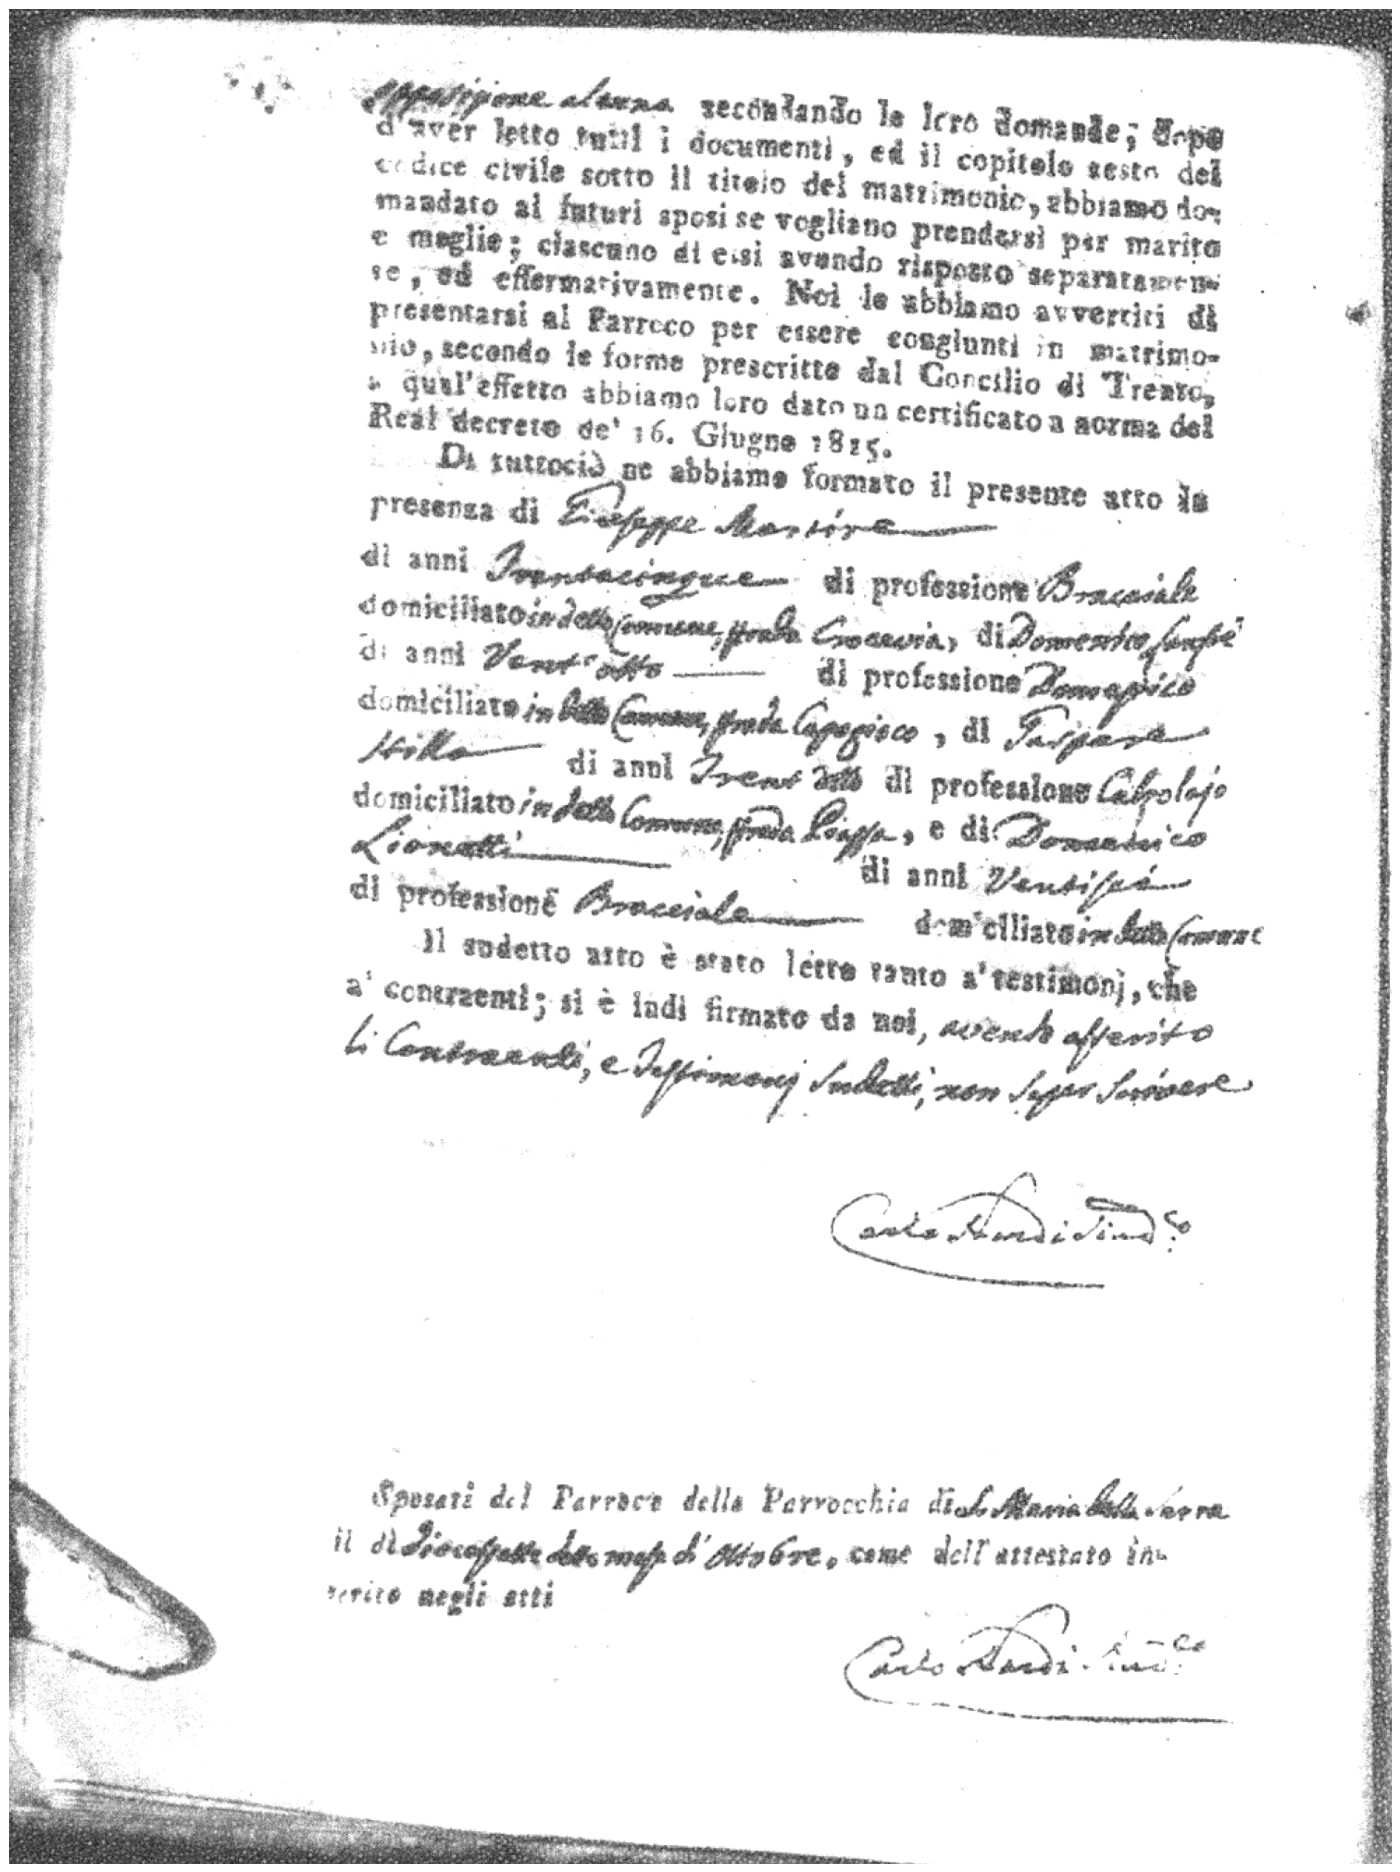 opposizione alcuna secondando le loro domande; dopo
d'aver letto tutti i documenti, ed il copitolo sesto del
codice civile sotto il titolo del matrimonio, abbiamo do-
mandato ai futuri sposi se vogliano prendersi per marito
e moglie; ciascuno di essi avendo risposto separatamen-
te, ed affermativamente. Noi le abbiamo avvertiti di
presentarsi al Parroco per essere congiunti in matrimo-
nio, secondo le forme prescritte dal Concilio di Trento,
a qual'effetto abbiamo loro dato un certificato a norma del
Real decreto de' 16. Giugno 1815.
Di tuttociò ne abbiamo formato il presente atto in
presenza di Giuseppe
di anni Trentacinque di professione Bracciale
domiciliato in detto Comune, strada Crocevia, di Domenico
di anni Vent'otto di professione
domiciliato in detto Comune, strada , di Gaspare
Stilla di anni Trent'otto di professione Calzolajo
domiciliato in detto Comune, strada Piazza, e di Domenico
Lionetti di anni Ventisei
di professione Bracciale domiciliato in detto Comune
Il sudetto atto è stato letto tanto a' testimonj, che
a' contraenti; si è indi firmato da noi, avendo asserito
li Contraenti, e Testimonj sudetti, non saper scrivere
Carlo Nardi Sind.co
Sposati del Parroco della Parrocchia di S. Maria della Serra
il dì Diecessette detto mese d'Ottobre, come dell'attestato in-
serito negli atti
Carlo Nardi Sind.co